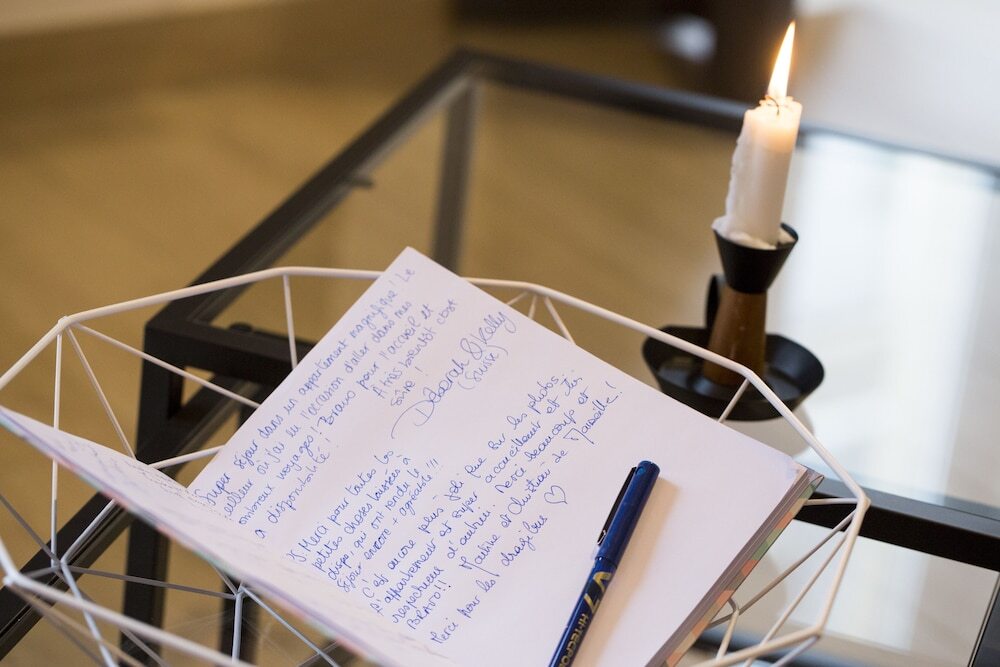 Super séjour dans un appartement magnifique! Le
meilleur où j'ai eu l'occasion d'aller dans mes
nombreux voyages! Bravo pour l'accueil et
la disponibilité!! A très bientôt c'est
sûre!
Déborah & Kelly
(Suisse)
Merci pour toutes les
petites choses laissées à
dispo, qui ont rendu le
séjour encore + agréable!!!
C'est encore plus joli que sur les photos.
L'appartement est super accueillant et
respectueux d'autrui. Merci beaucoup et
BRAVO!! Maurine et Christian de Marseille!
Merci pour les dragibus ♡
V7
HI-TECPO